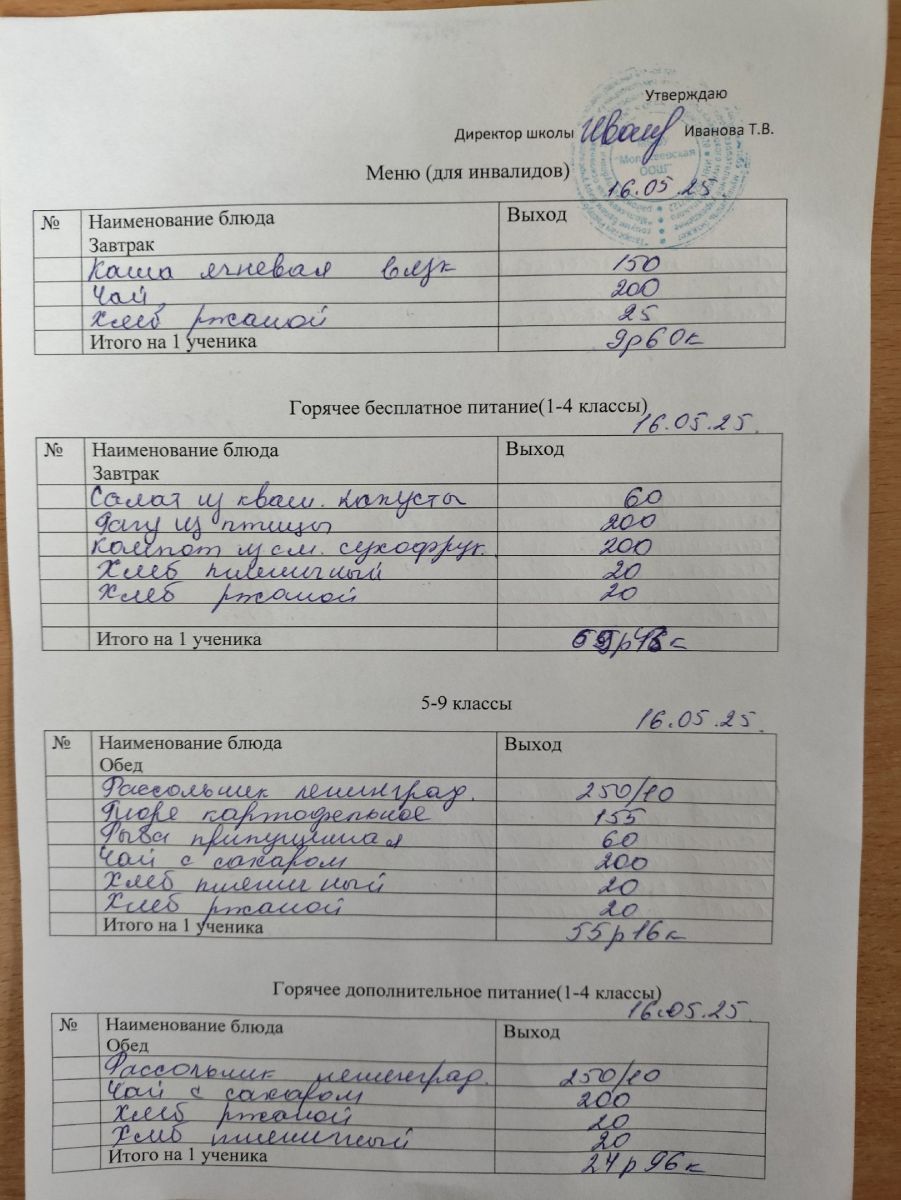 Утверждаю
Директор школы Иванова Т.В.
Меню (для инвалидов)
16.05.25.
№ Наименование блюда Выход
Завтрак
Каша ячневая вязк 150
Чай 200
Хлеб ржаной 25
Итого на 1 ученика 9р60к
Горячее бесплатное питание(1-4 классы)
16.05.25.
№ Наименование блюда Выход
Завтрак
Салат из кваш. капусты 60
Рагу из птицы 200
Компот из см. сухофрук. 200
Хлеб пшеничный 20
Хлеб ржаной 20
Итого на 1 ученика
5-9 классы
16.05.25.
№ Наименование блюда Выход
Обед
Рассольник ленинград. 250/10
Пюре картофельное 155
Рыба припущенная 60
Чай с сахаром 200
Хлеб пшеничный 20
Хлеб ржаной 20
Итого на 1 ученика 55р16к
Горячее дополнительное питание(1-4 классы)
16.05.25.
№ Наименование блюда Выход
Обед
Рассольник ленинград. 250/10
Чай с сахаром 200
Хлеб ржаной 20
Хлеб пшеничный 20
Итого на 1 ученика 24р96к